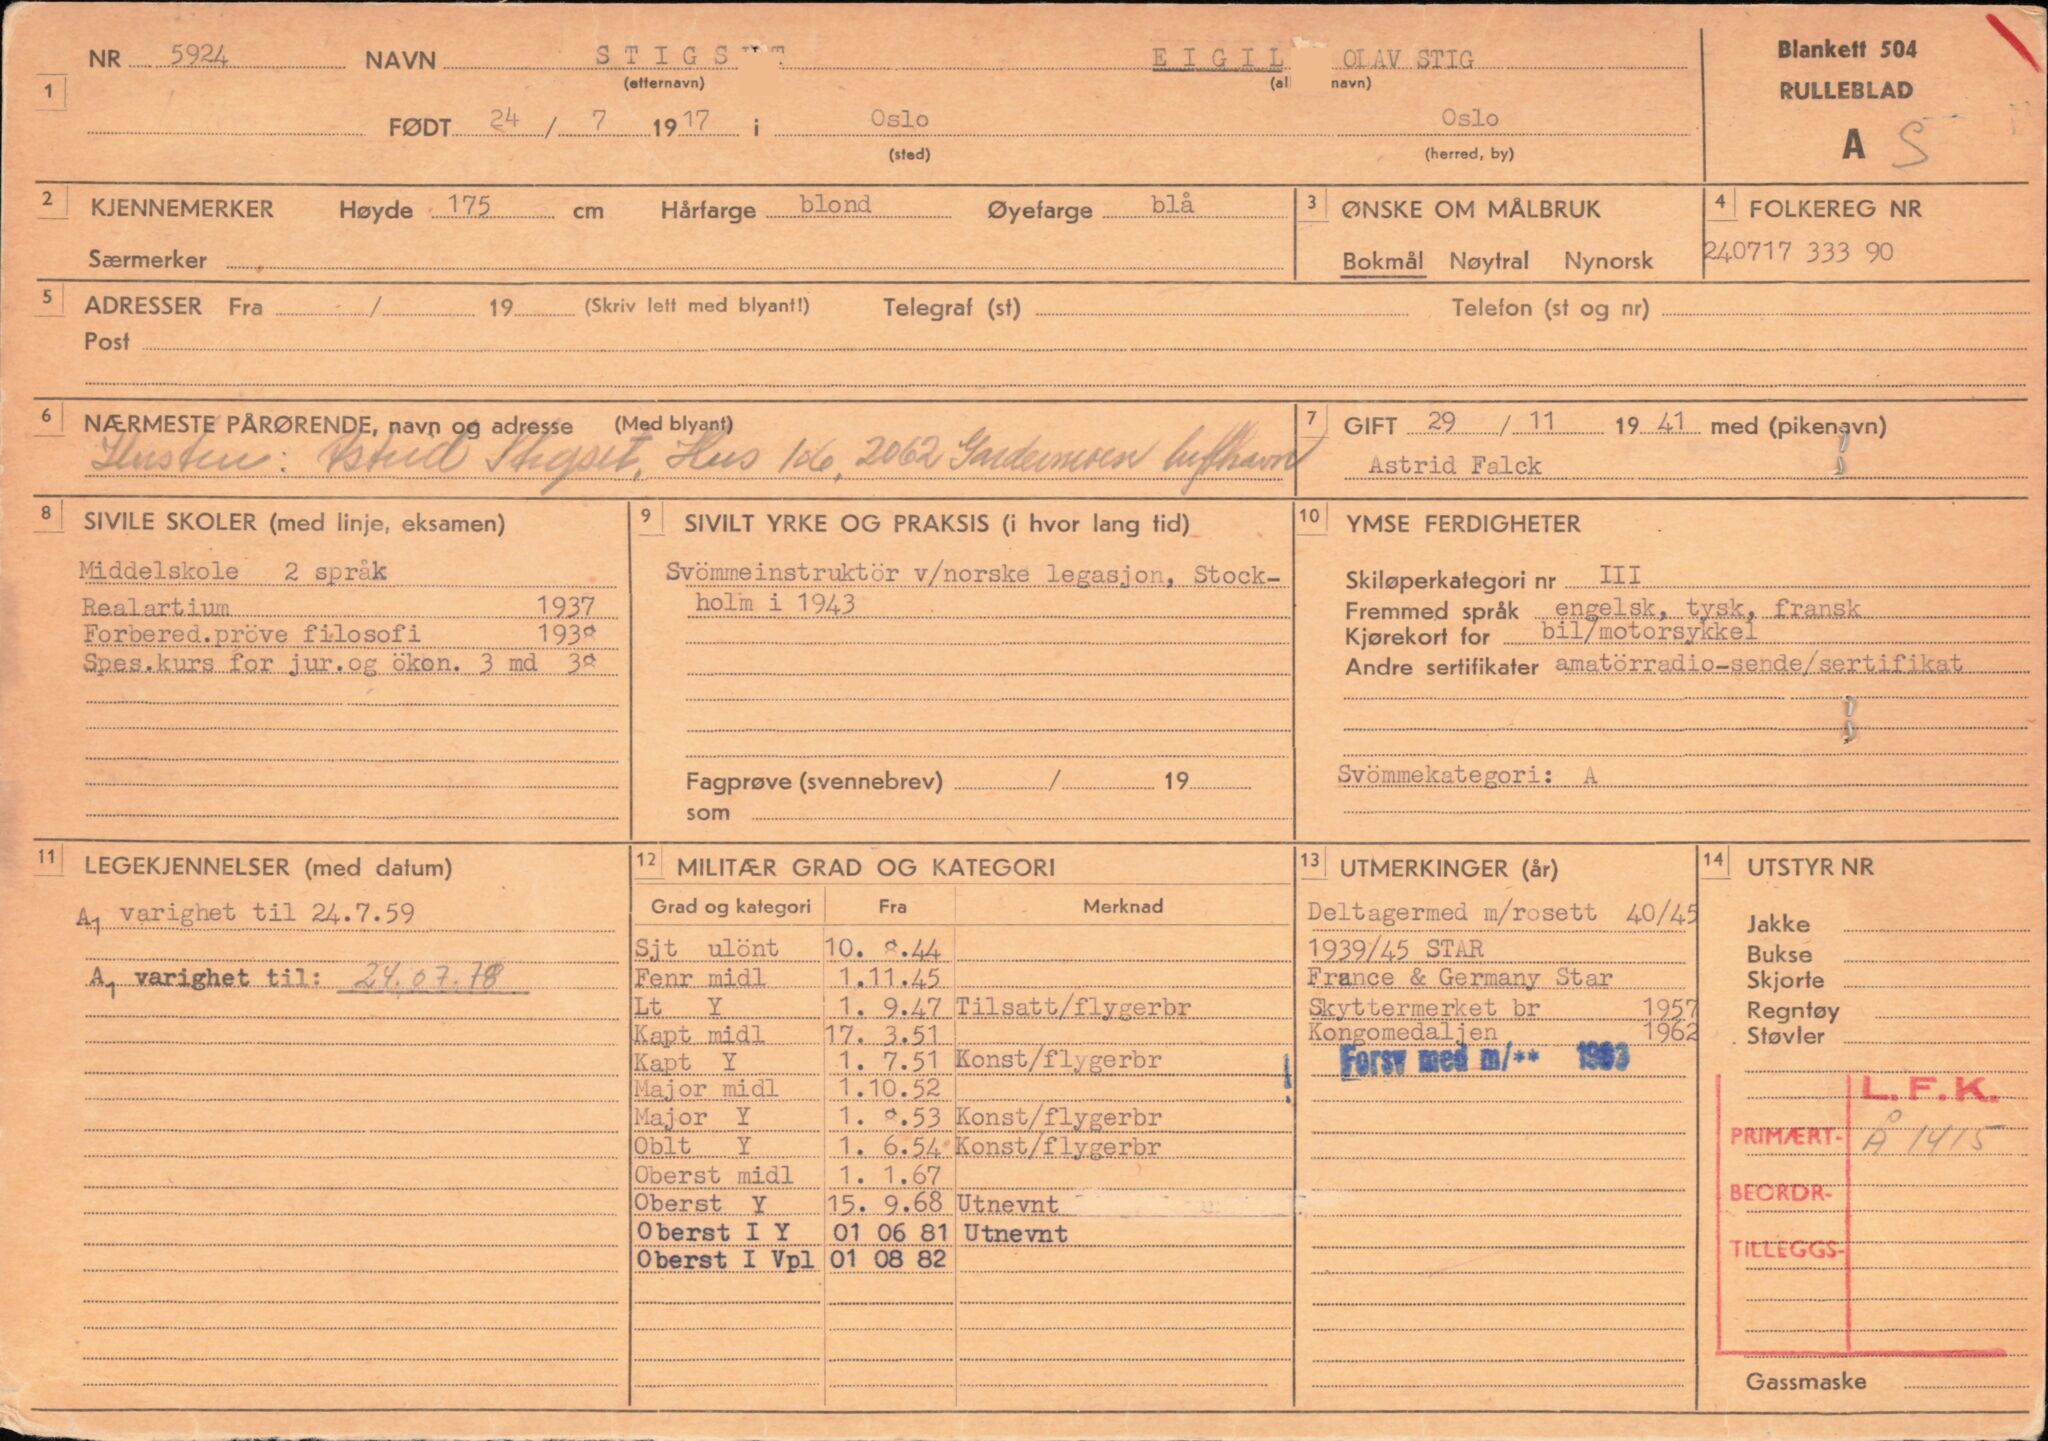 NR 5924 NAVN STIGS T EIGIL OLAV STIG Blankett 504
(etternavn) (al navn) RULLEBLAD
1
FØDT 24 / 7 1917 i Oslo Oslo A S
(sted) (herred, by)
2 KJENNEMERKER Høyde 175 cm Hårfarge blond Øyefarge blå
Særmerker
3 ØNSKE OM MÅLBRUK
Bokmål Nøytral Nynorsk
4 FOLKEREG NR
240717 333 90
5 ADRESSER Fra / 19 (Skriv lett med blyant!) Telegraf (st) Telefon (st og nr)
Post
6 NÆRMESTE PÅRØRENDE, navn og adresse (Med blyant)
Hustru: Astrid Stigset, Hus 106, 2062 Gardermoen lufthavn
7 GIFT 29 / 11 19 41 med (pikenavn)
Astrid Falck
8 SIVILE SKOLER (med linje, eksamen)
Middelskole 2 språk
Realartium 1937
Forbered.pröve filosofi 1938
Spes.kurs for jur.og ökon. 3 md 38
9 SIVILT YRKE OG PRAKSIS (i hvor lang tid)
Svömmeinstruktör v/norske legasjon, Stock-
holm i 1943
Fagprøve (svennebrev) / 19
som
10 YMSE FERDIGHETER
Skiløperkategori nr III
Fremmed språk engelsk, tysk, fransk
Kjørekort for bil/motorsykkel
Andre sertifikater amatörradio-sende/sertifikat
Svömmekategori: A
11 LEGEKJENNELSER (med datum)
A1 varighet til 24.7.59
A1 varighet til: 24.07.78
12 MILITÆR GRAD OG KATEGORI
Grad og kategori Fra Merknad
Sjt ulönt 10. 8.44
Fenr midl 1.11.45
Lt Y 1. 9.47 Tilsatt/flygerbr
Kapt midl 17. 3.51
Kapt Y 1. 7.51 Konst/flygerbr
Major midl 1.10.52
Major Y 1. 8.53 Konst/flygerbr
Oblt Y 1. 6.54 Konst/flygerbr
Oberst midl 1. 1.67
Oberst Y 15. 9.68 Utnevnt
Oberst I Y 01 06 81 Utnevnt
Oberst I Vpl 01 08 82
13 UTMERKINGER (år)
Deltagermed m/rosett 40/45
1939/45 STAR
France & Germany Star
Skyttermerket br 1957
Kongomedaljen 1962
Forsv med m/** 1963
14 UTSTYR NR
Jakke
Bukse
Skjorte
Regntøy
Støvler
L.F.K.
PRIMÆRT- Å 1415
BEORDR-
TILLEGGS-
Gassmaske